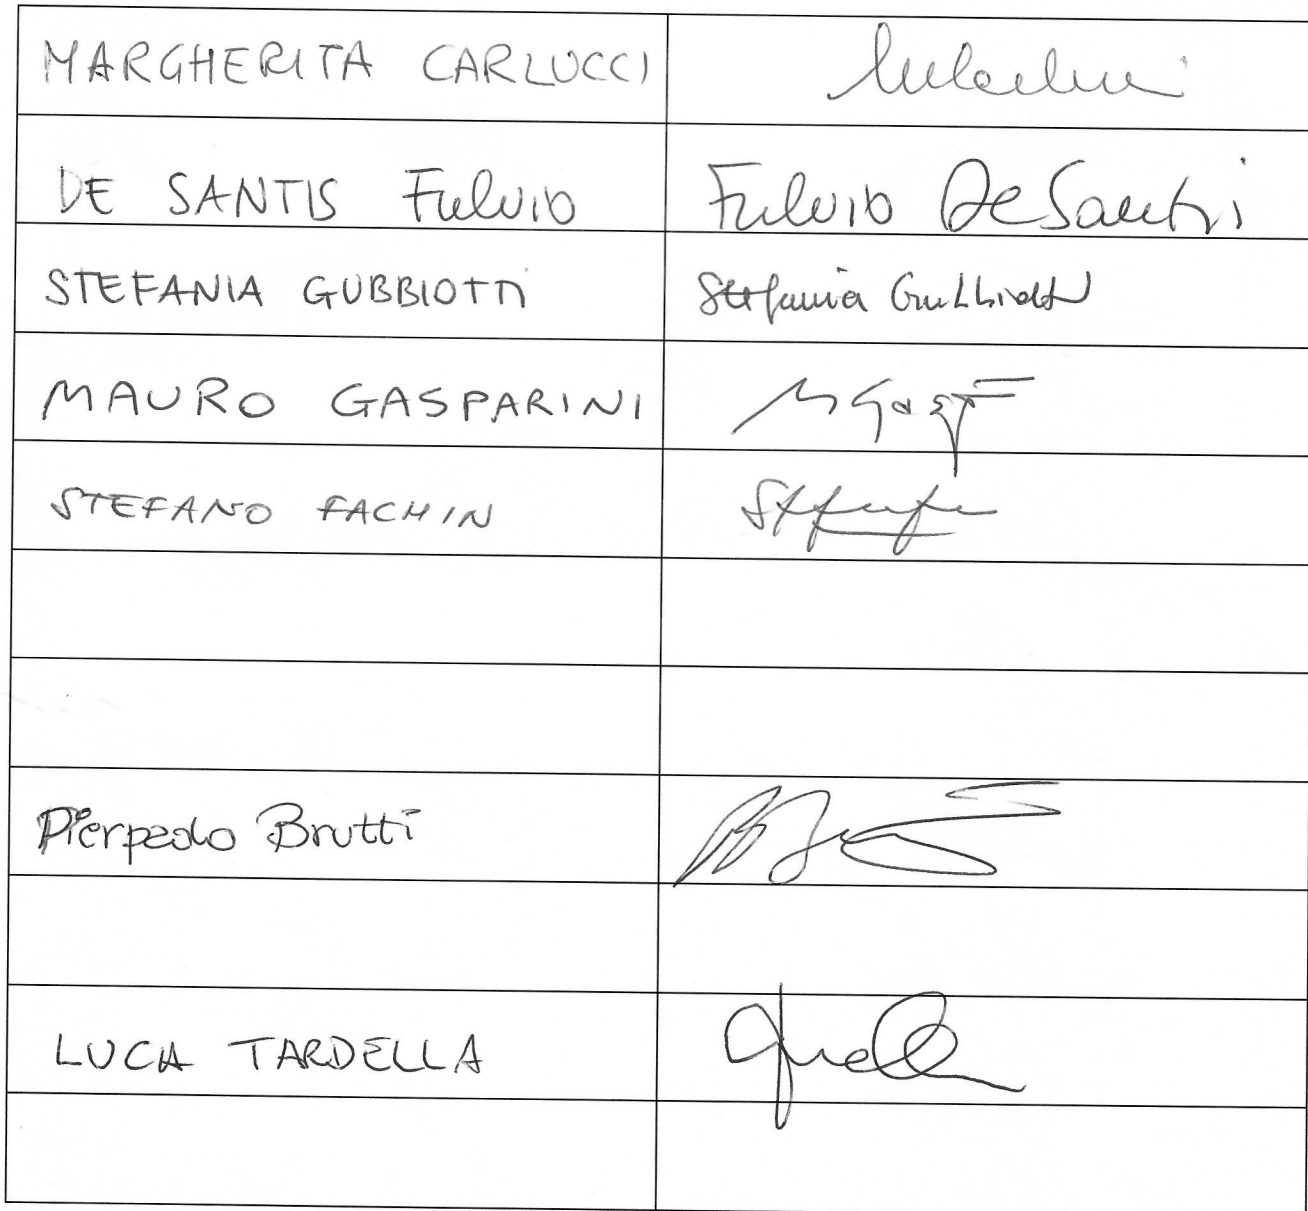 MARGHERITA CARLUCCI
DE SANTIS Fulvio Fulvio De Santis
STEFANIA GUBBIOTTI Stefania Gubbiotti
MAURO GASPARINI
STEFANO FACHIN
Pierpaolo Brutti
LUCA TARDELLA